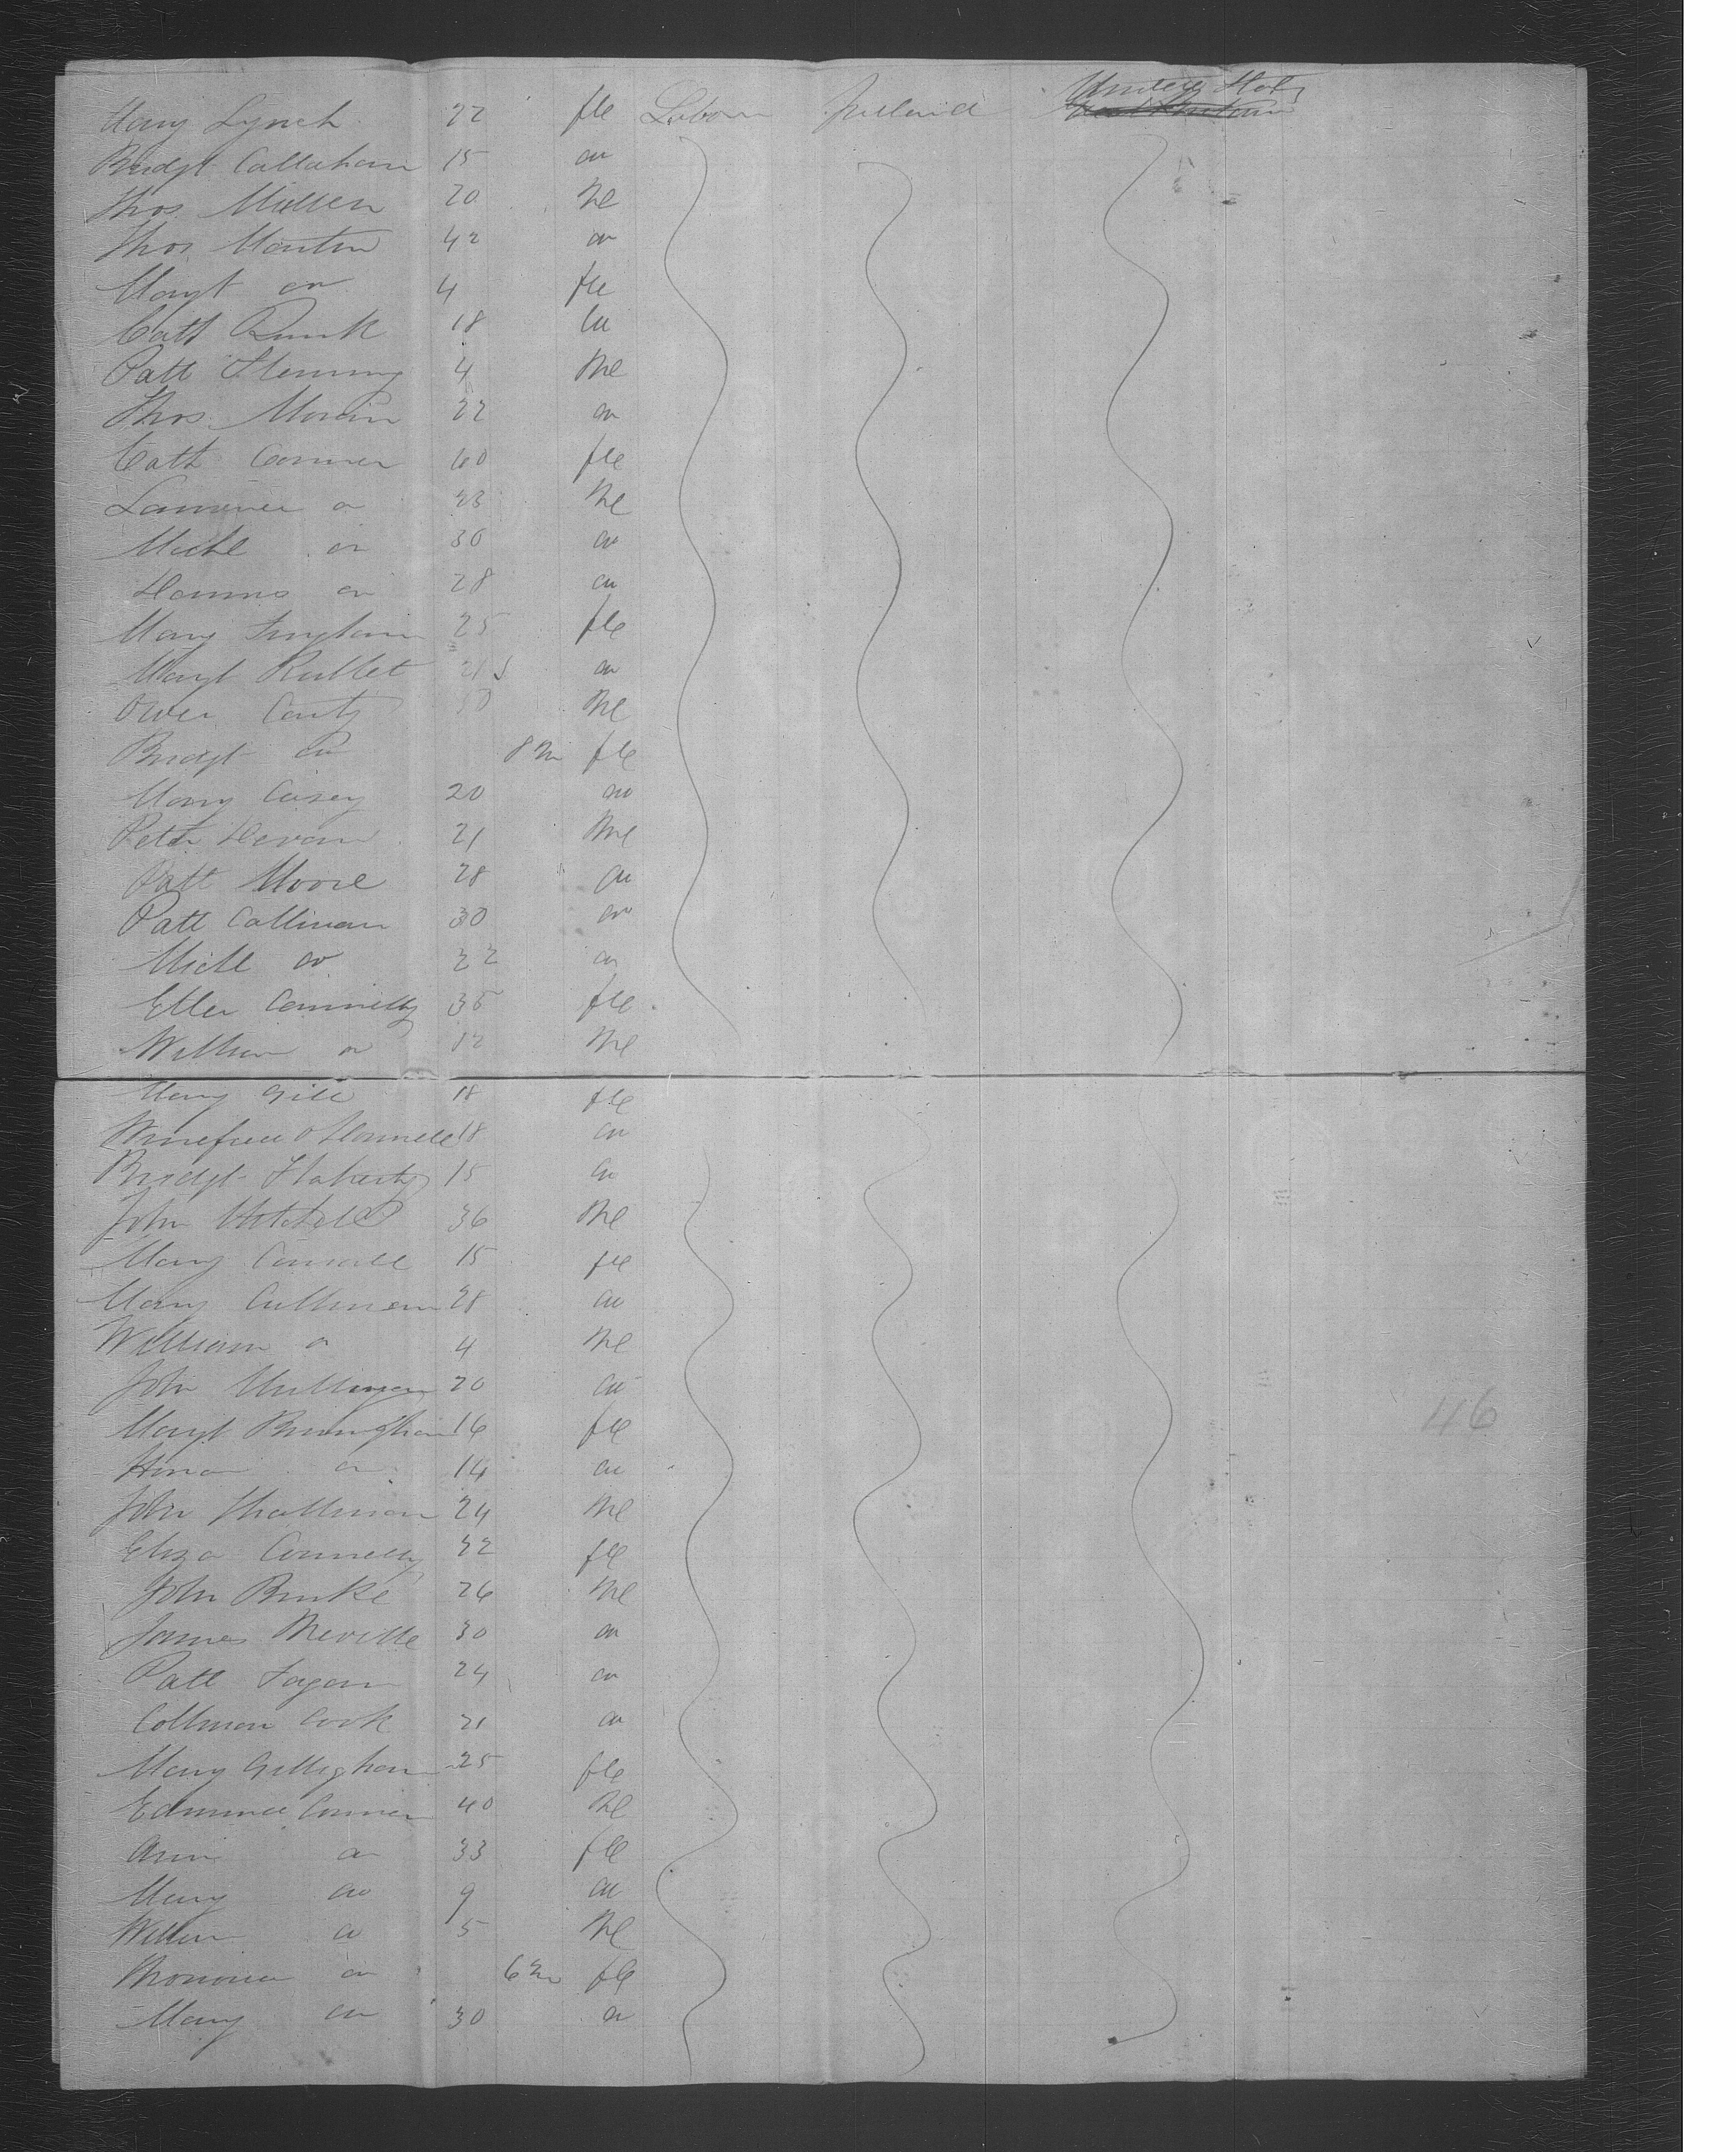 Mary Lynch 22 fle Labour Ireland United States
Bridgt Callahan 15 do
Thos Mullen 20 Me
Thos Martin 42 do
Margt do 4 fle
Cath Quirk 18 do
Patt Flemming 4 Me
Thos. Moran 22 do
Cath Connor 60 fle
do 23 Me
Michl do 30 do
do 28 do
Mary 25 fle
Margt do
Owen Canty Me
Bridgt do 8 m fle
Mary Casey 20 do
Peter Devan 21 Me
Patt Moore 28 do
Patt Callinan 30 do
Michl do 22 do
Ellen Connelly 35 fle
William do 12 Me
Mary Gill 18 fle
Winefred O'Donnell 18 do
Bridgt Flaherty 15 do
John Mitchell 36 Me
Mary 15 fle
Mary Cullinan 28 do
William do 4 Me
John 20 do
Margt 16 fle
Honor do 14 do
John 24 Me
Eliza Connelly 32 fle
John Burke 26 Me
James Neville 30 do
Patt Fagan 24 do
Collman Cook 21 do
Mary Gillighan 25 fle
Edmund Connor 40 Me
Ann do 33 fle
Mary do 9 do
William do 5 Me
do 6 m fle
Mary do 30 do
46